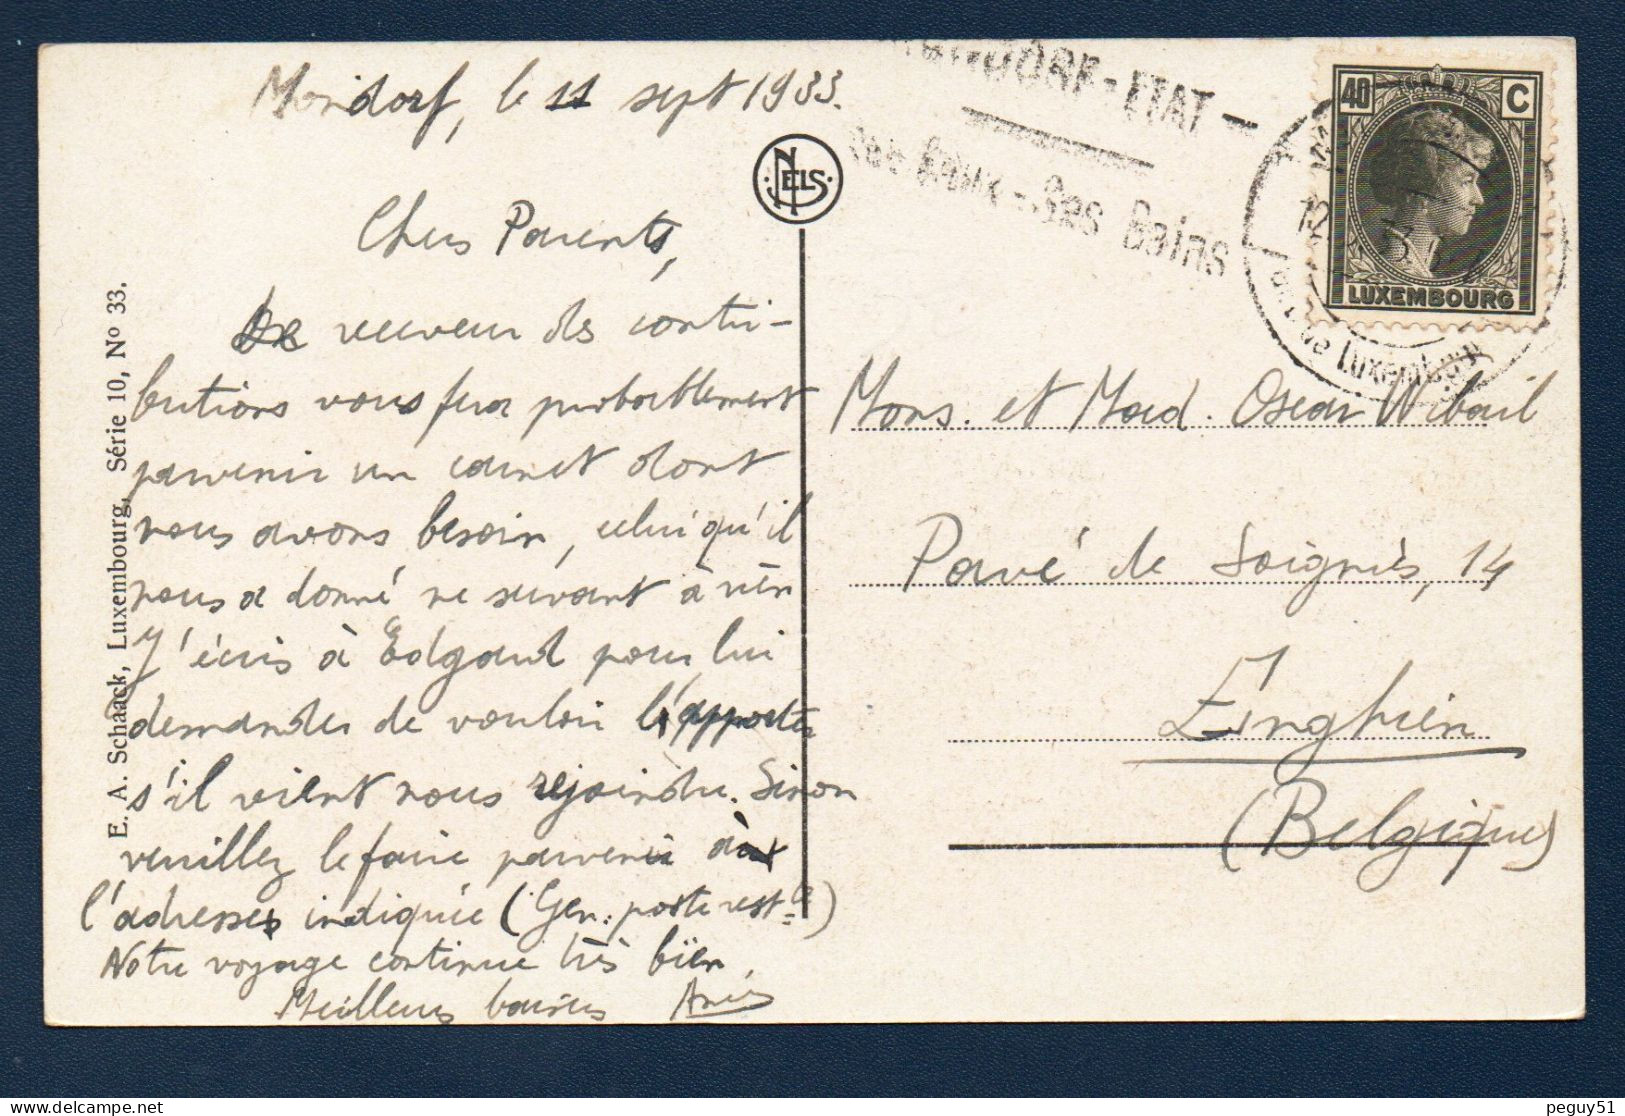 Mondorf, le 11 sept 1933.
Chers Parents,
Le receveur des contri-
butions vous fera probablement
parvenir un carnet dont
nous avons besoin, celui qu'il
nous a donné ne servant à rien
J'écris à Edgard pour lui
demander de vouloir l'apporter
s'il vient nous rejoindre. Sinon
veuillez le faire parvenir à
l'adresse indiquée (Gen. poste rest.e)
Notre voyage continue très bien.
Meilleurs baisers
E. A. Schaack, Luxembourg, Série 10, Nº 33.
NELS
MONDORF-ETAT -
Ses Eaux - Ses Bains
40 C
LUXEMBOURG
Luxembourg
Mons. et Mad. Oscar Wibail
Pavé de Soignies, 14
Enghien
(Belgique)
peguy51